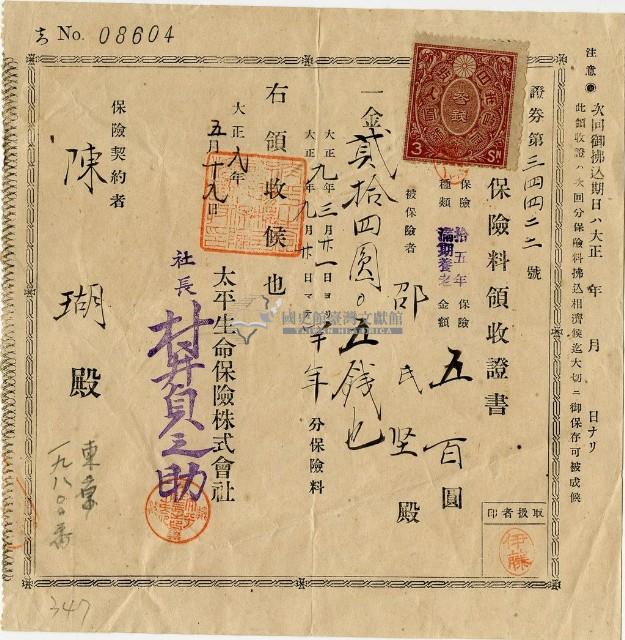 No. 08604
注意 ◉ 次回御拂込期日ハ大正 年 月 日ナリ
此領收證ハ次回分保險料拂込相濟候迄大切ニ御保存可被成候
證券第三四四二二號
保險料領收證書
保險種類 拾五年滿期養老 保險金額 五百圓
被保險者 邵氏坚殿
一金貳拾四圓〇五錢也
大正九年三月廿一日ヨリ
大正 年九月廿日マデ半年分保險料
右領收候也
大正八年
五月十九日
太平生命保險株式會社
社長 村井貞之助
保險契約者
陳 瑚 殿
取扱者印
伊藤
3 SN
國史館臺灣文獻館
TAIWAN HISTORICA
一九八〇〇番
347